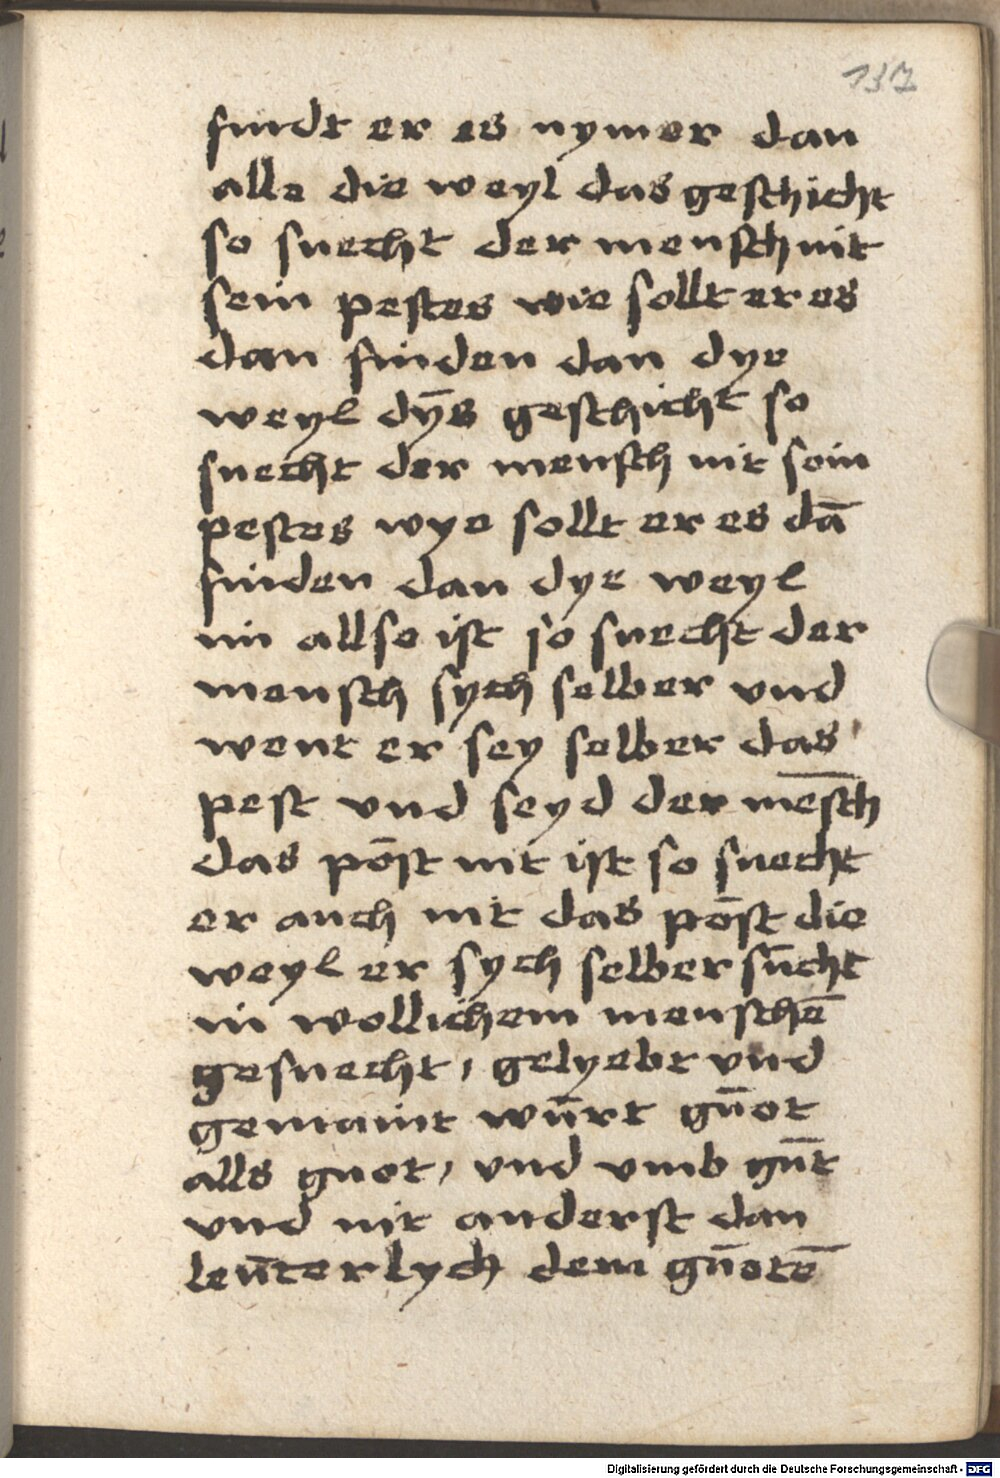 137
findt er es nymer dan
alle die weyl das geschicht
so suecht der mensch nit
sein pestes wie sollt er es
dan finden dan dye
weyl dÿs geschicht so
suecht der mensch nit sein
pestes wye sollt er es dā
finden dan dye weyl
im allso ist so suecht der
mensch sych selber vnd
went er sey selber das
pest vnd seyd der mēsch
das pōst nit ist so suecht
er auch nit das pōst die
weyl er sych selber sūcht
in wollichem menschē
gesuecht, gelyebt vnd
gemaint wūrt gūot
alls guot, vnd vmb gūt
vnd nit anderst dan
leūterlych dem gūotē
Digitalisierung gefördert durch die Deutsche Forschungsgemeinschaft - DFG